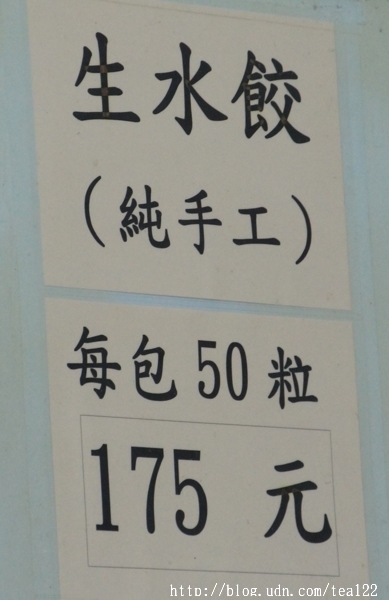 生水餃
(純手工)
每包50粒
175元
http://blog.udn.com/tea122